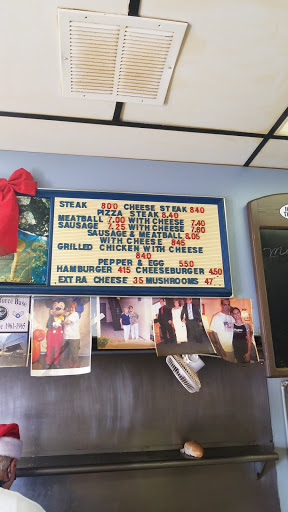 STEAK 800 CHEESE STEAK 840
PIZZA STEAK 8.40
MEATBALL 7.00 WITH CHEESE 7.40
SAUSAGE 7.25 WITH CHEESE 7.80
SAUSAGE & MEATBALL 8.05
WITH CHEESE 845
GRILLED CHICKEN WITH CHEESE
840
PEPPER & EGG 550
HAMBURGER 415 CHEESEBURGER 450
EXTRA CHEESE 35 MUSHROOMS 47
Force Base
1961-1965